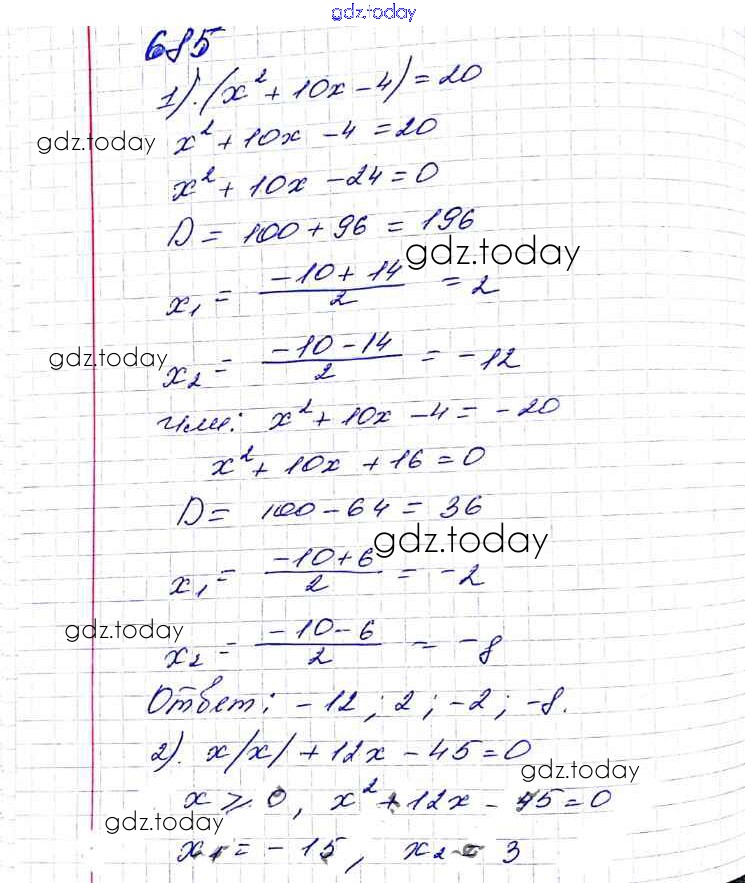 gdz.today
685
1). (x² + 10x - 4) = 20
gdz.today
x² + 10x - 4 = 20
x² + 10x - 24 = 0
D = 100 + 96 = 196
gdz.today
x₁ = (-10 + 14)/2 = 2
gdz.today
x₂ = (-10 - 14)/2 = -12
или: x² + 10x - 4 = -20
x² + 10x + 16 = 0
D = 100 - 64 = 36
gdz.today
x₁ = (-10 + 6)/2 = -2
gdz.today
x₂ = (-10 - 6)/2 = -8
Ответ: -12; 2; -2; -8.
2). x|x| + 12x - 45 = 0
gdz.today
x ≥ 0, x² + 12x - 45 = 0
gdz.today
x₁ = -15, x₂ = 3